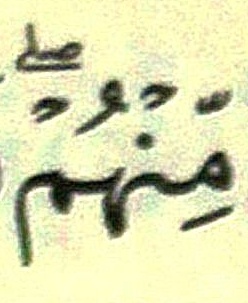 مِّنْهُمْۖ